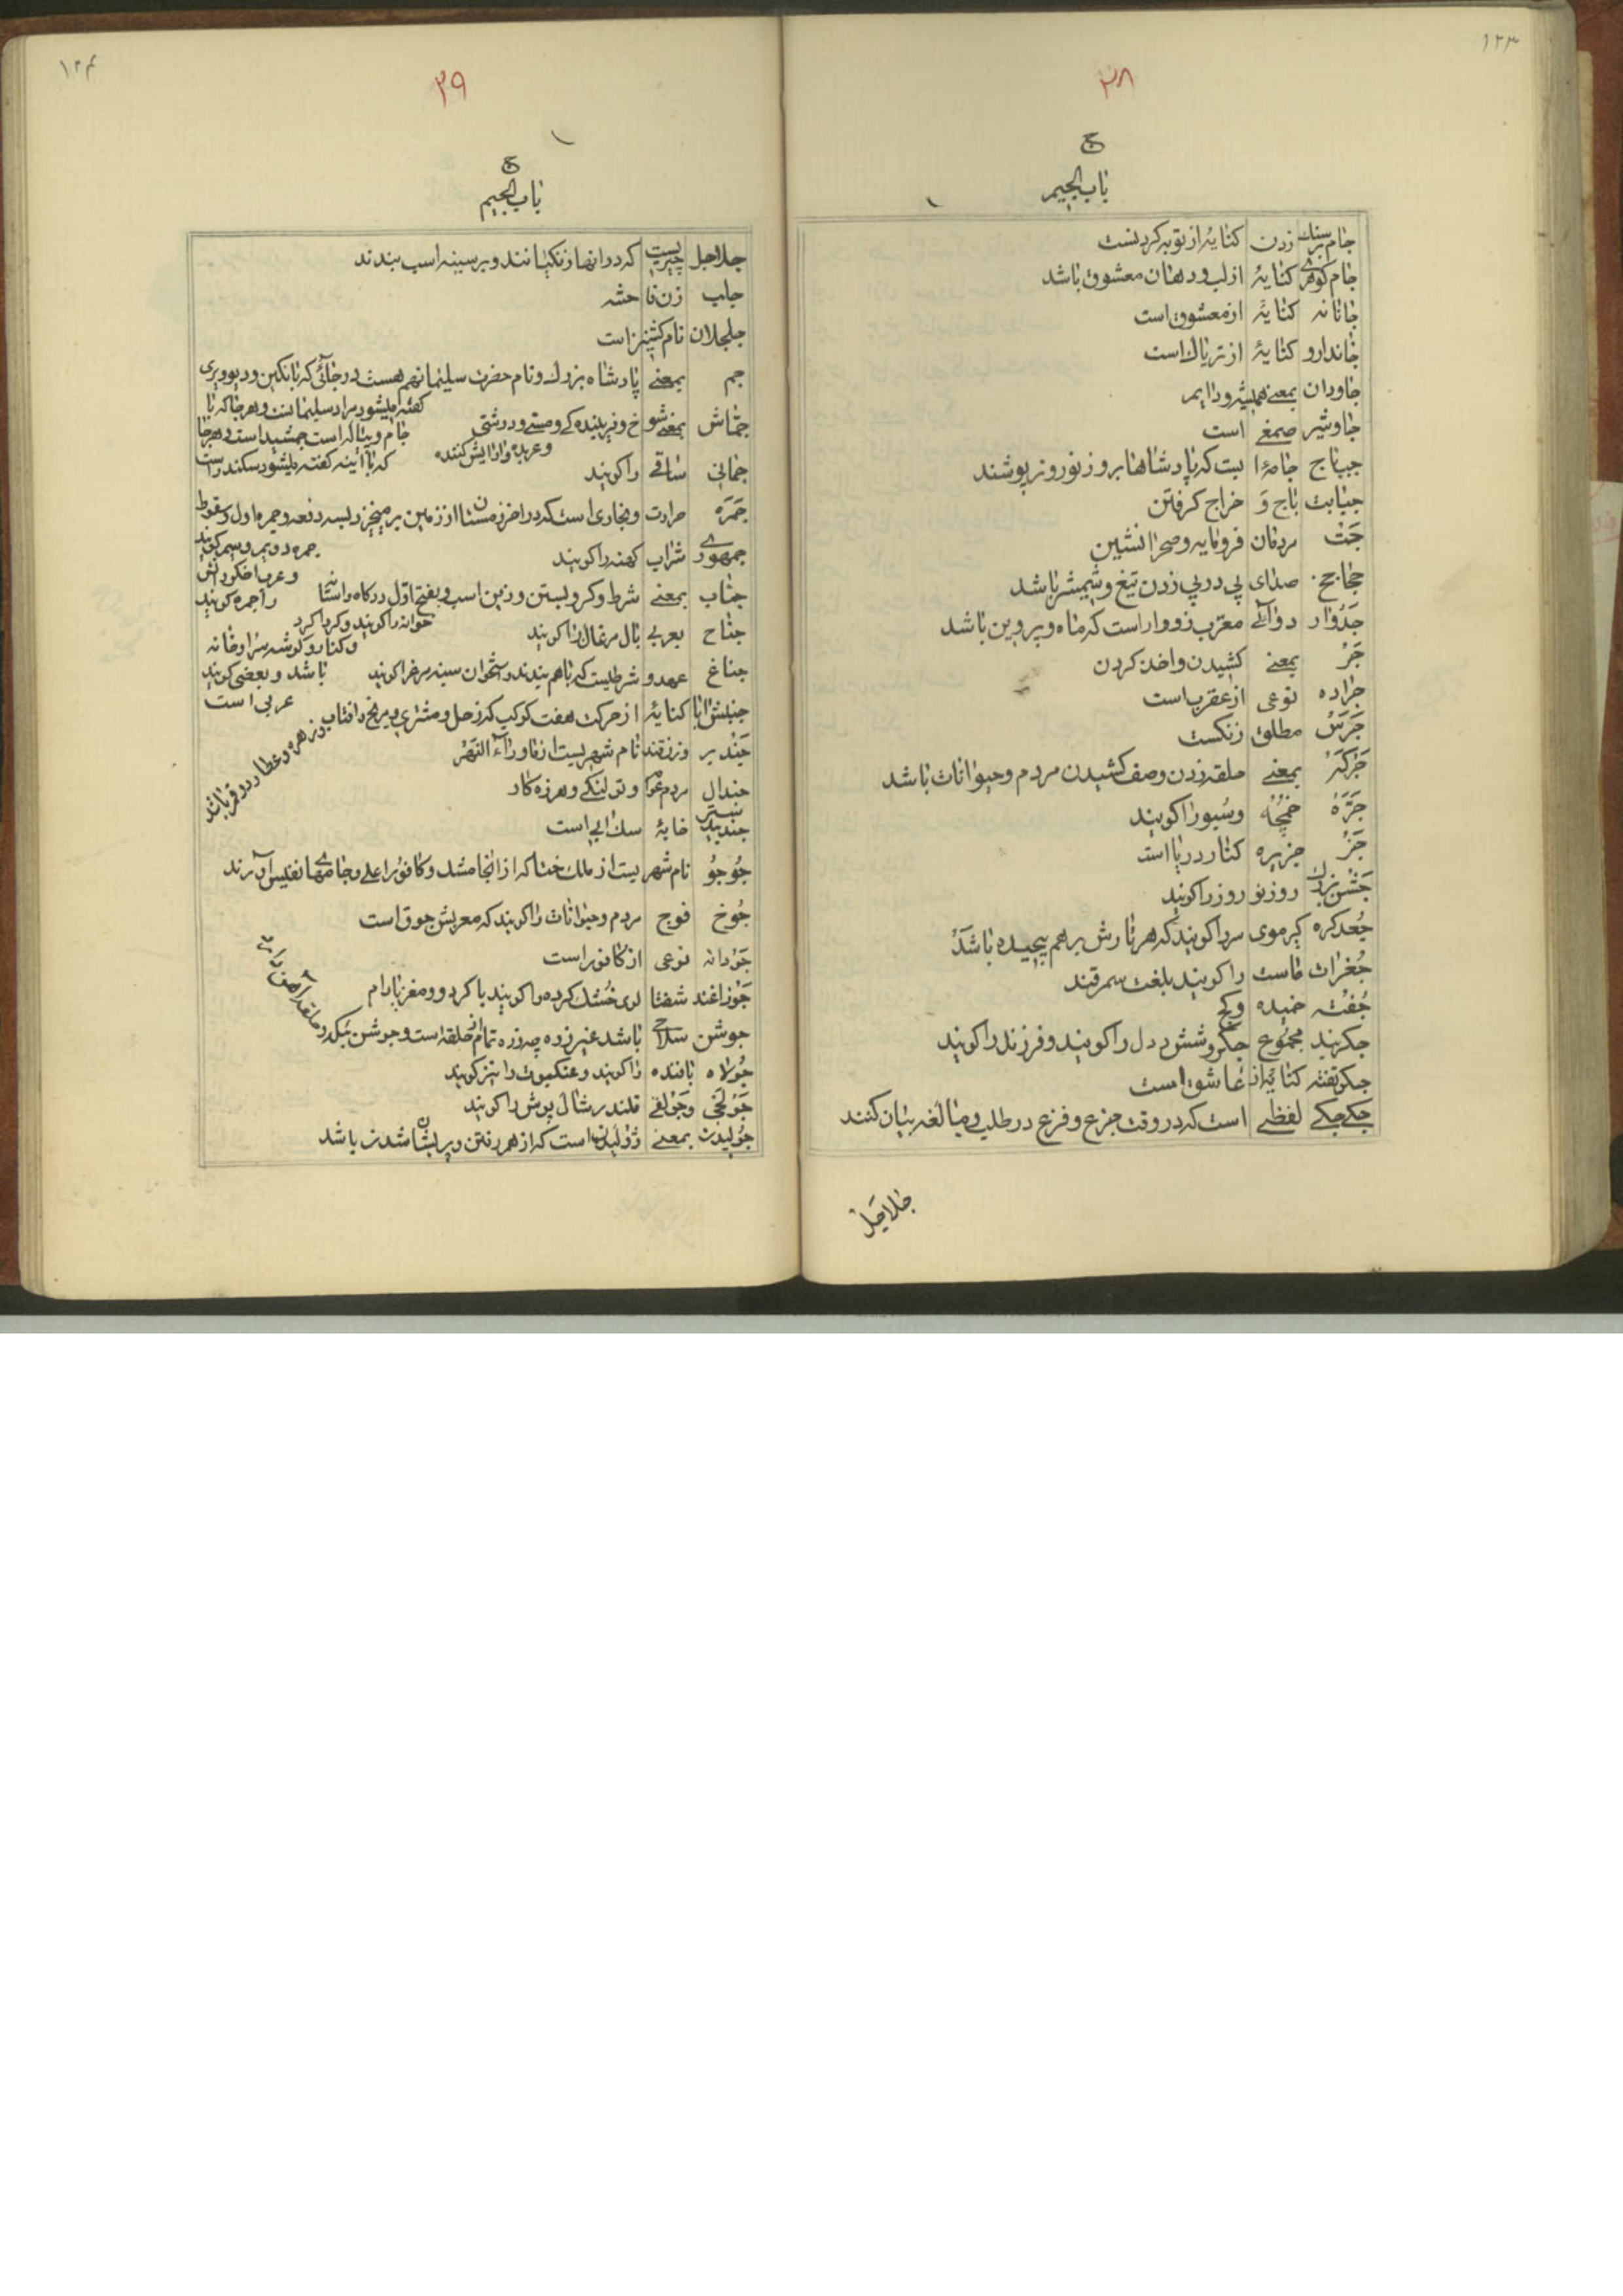 ١٢٣
٢٨
ج
باب الجیم
جام بر سنك زدن کنایه از توبه کردنست
جام کوهری کنایهٔ از لب و دهان معشوق باشد
جانانه کنایهٔ از معشوق است
جاندارو کنایهٔ از تریاك است
جاودان بمعنے همیشه و دایم
جاوشیر صمغے است
جبتاج جامهٔ ایست که پادشاهان بروز نوروز پوشند
جبایت باج و خراج کرفتن
جَتْ مردمان فرومایه و صحرا نشین
صدای پی در پی زدن تیغ و شمشیر باشد
جَدْوار دوائے معرّب زووار است که ماه و پروین باشد
جَرْ بمعنے کشیدن و اخذ کردن
جراده نوعی از عقرب است
جَرَسْ مطلق زنکست
جَرکَهْ بمعنے حلقه زدن و صف کشیدن مردم و حیوانات باشد
جَرّه خمچه و سُبو را کویند
جَزْ جزیره کنار دریا است
جَشْن بزرك روز نو روز را کویند
جُعد کره کیرموی سر را کویند که هر تارش بر هم پیچیده باشد
جُغرات ماست را کویند بلغت سمرقند
جُفْته خمیده و کج
جکربند مجموع جکر و شش و دل را کویند و فرزند را کویند
جکر تفته کنایه از عاشق است
جکے جکے لفظے است که در وقت جزع و فزع در طلب و مبالغه بیان کنند
جلاجل
١٢٤
٢٩
ج
باب الجیم
جلاجل چیزیست که در آنها زنکها نند و بر سینه اسب بندند
جلب زن فاحشه
جلجلان نام کشنیز است
جم بمعنے پادشاه بزرك و نام حضرت سلیمان هم هست در جائی که با نکین و دیو و پری
کفته میشود مراد سلیمانست و هر جا که با
جمّاش بمعنے شوخ و فریبنده کے و مستے و درشتی
جام و پیاله است جمشید است و هر جا
و عربده و آرایش کننده
که با آینه کفته میشود سکندر است
جمانی ساقے را کویند
جَمَرَه حرارت و بخاری است که در آخر زمستان از زمین بر میخیزد بسه دفعه و جمره اول و سقوط
جمره دویم و سیم کویند
جمهوری شراب کهنه را کویند
و عرب اخکر آتش
را جمره کویند
جناب بمعنے شرط و کرو بستن و زین اسب و بفتح اول درکاه و آستانه
خوانه را کویند و کردا کرد
جناح بعربے بال مرغان را کویند
و کنار و کوشه سرا و خانه
جناغ عهد و شرطیست که با هم بندند و استخوان سینه مرغ را کویند باشد و بعضی کویند
عربی است
جنبش آبا کنایهٔ از حرکت هفت کوکب که زحل و مشتری و مریخ و افتاب و زهره و عطارد و قمر باشد
نام شهریست از ماوراء النَهْر
جندال مردم غوغا و تولنکے و هرزه کار
جندبیدستر خایهٔ سك ابی است
جُوجُو نام شهریست از ملك ختا که از انجا مشك و کافور اعلے و جامهای نفیس آورند
جُوخ فوج مردم و حیوانات را کویند که معربش جوق است
جَوْدانه نوعی از کافور است
جَوْزاغند شفتالوی خُشك کرده را کویند با کردو و مغز بادام
جوشن سلاحی باشد غیر زره چه زره تمام از حلقه است و جوشن تنکه در حلقه آهن است
جُولاه بافنده را کویند و عنکبوت را نیز کویند
جَوْلخی و جَوْلقے قلندر شال پوش را کویند
جُولیدن بمعنے ژولیدن است که از هم رفتن و پریشان شدن باشد